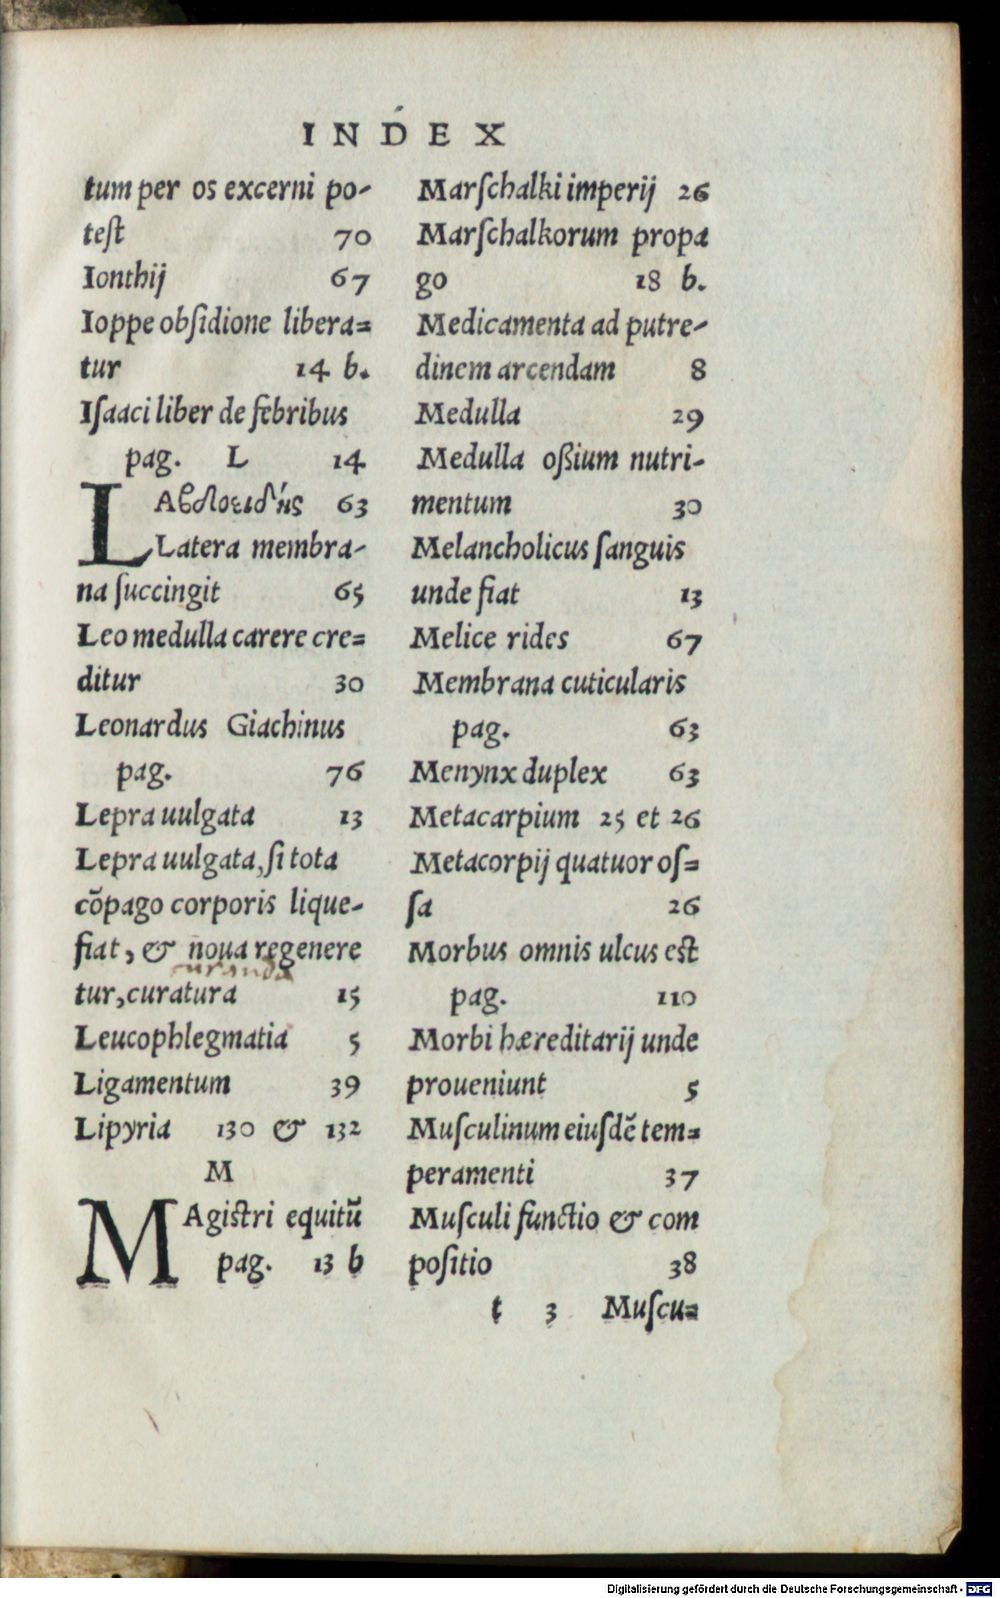 INDEX
tum per os excerni po-
teſt 70
Ionthij 67
Ioppe obſidione libera=
tur 14 b.
Iſaaci liber de febribus
pag. L 14
LΑβδοειδής 63
Latera membra-
na ſuccingit 65
Leo medulla carere cre=
ditur 30
Leonardus Giachinus
pag. 76
Lepra uulgata 13
Lepra uulgata, ſi tota
cõpago corporis lique-
fiat, & noua regenere
curanda
tur, curatura 15
Leucophlegmatia 5
Ligamentum 39
Lipyria 130 & 132
M
MAgiſtri equitũ
pag. 13 b
Marſchalki imperij 26
Marſchalkorum propa
go 18 b.
Medicamenta ad putre-
dinem arcendam 8
Medulla 29
Medulla oßium nutri-
mentum 30
Melancholicus ſanguis
unde fiat 13
Melice rides 67
Membrana cuticularis
pag. 63
Menynx duplex 63
Metacarpium 25 et 26
Metacorpij quatuor oſ=
ſa 26
Morbus omnis ulcus eſt
pag. 110
Morbi hæreditarij unde
proueniunt 5
Muſculinum eiuſdẽ tem=
peramenti 37
Muſculi functio & com
poſitio 38
t 3 Muſcu=
Digitalisierung gefördert durch die Deutsche Forschungsgemeinschaft - DFG